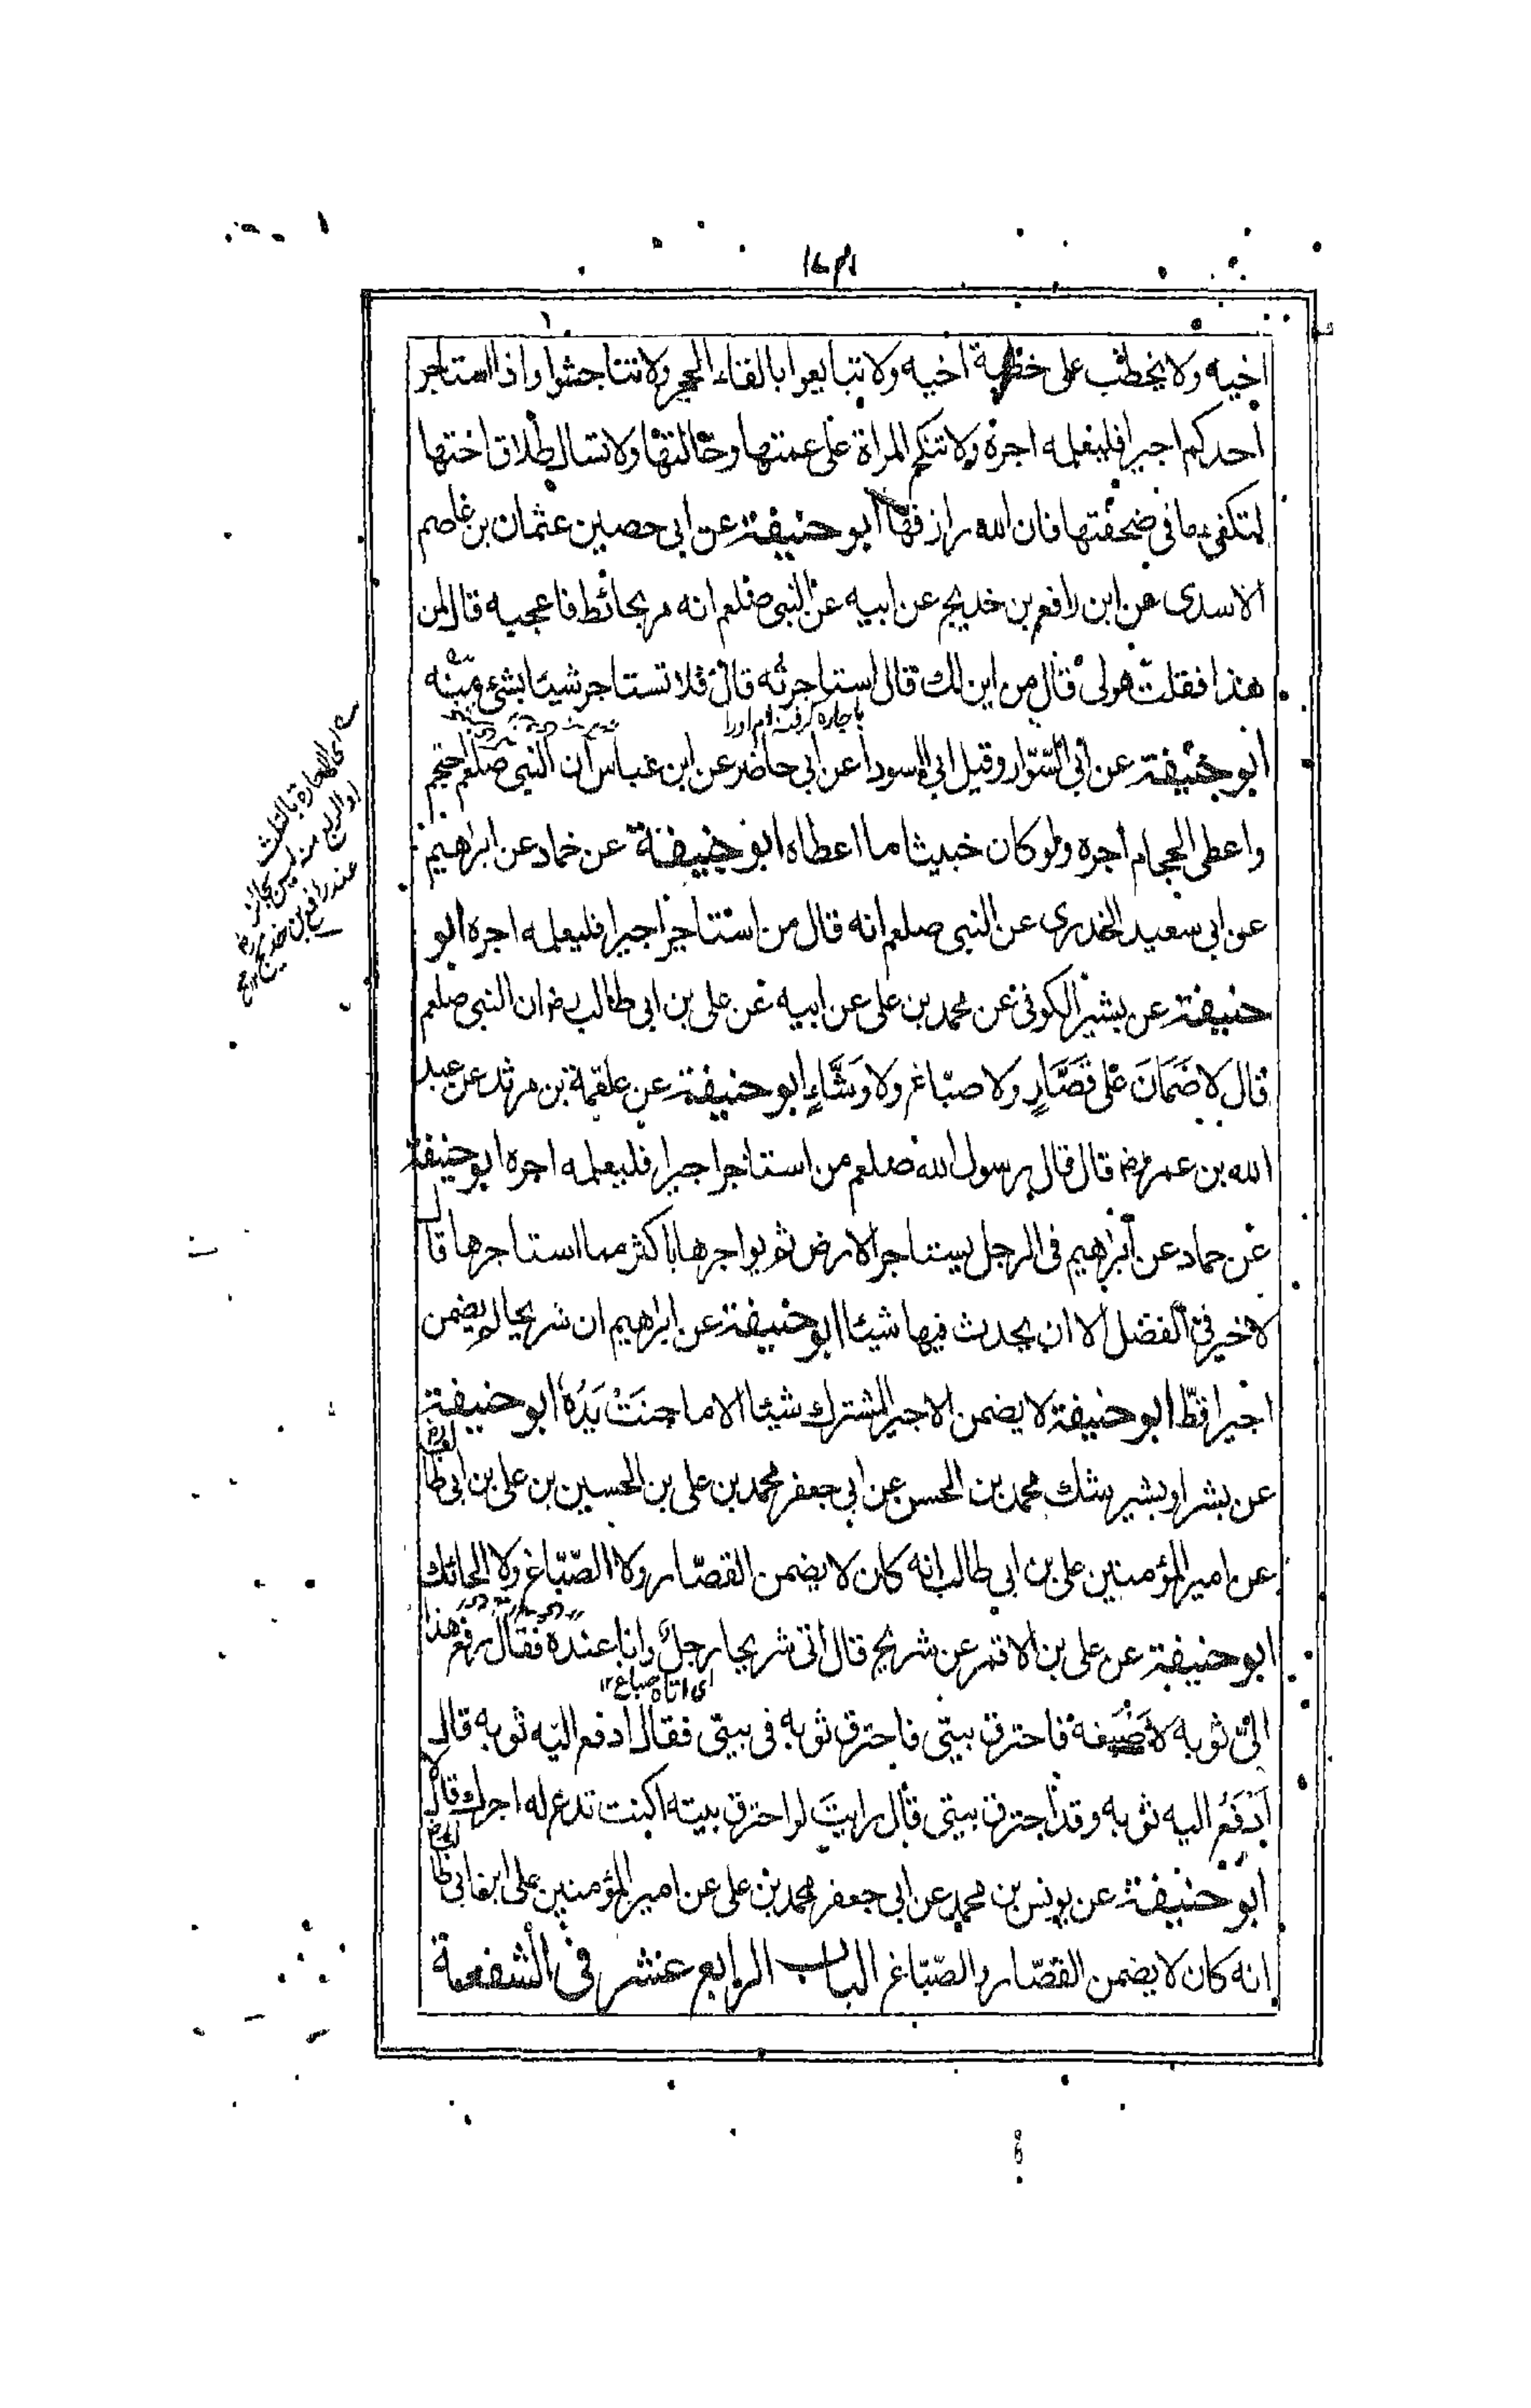 اخيه ولا يخطب على خطبة اخيه ولا تبايعوا بالقاء الحجر ولا تناجشوا واذا استاجر
احدكم اجيرا فليعلمه اجره ولا تنكح المراة على عمتها وخالتها ولا تسال طلاق اختها
لتكفىء ما فى صحفتها فان الله رازقها ابو حنيفة عن ابى حصين عثمان بن عاصم
الاسدى عن ابن رافع بن خديج عن ابيه عن النبى صلعم انه مر بحائط فاعجبه قال لمن
هذا فقلت هو لى قال من اين لك قال استاجرته قال فلا تستاجر شيئا بشىء منه
ابو حنيفة عن ابى السوار وقيل ابى السوداء عن ابى حاضر عن ابن عباس ان النبى صلعم احتجم
واعطى الحجام اجره ولو كان خبيثا ما اعطاه ابو حنيفة عن حماد عن ابراهيم
عن ابى سعيد الخدرى عن النبى صلعم انه قال من استاجر اجيرا فليعلمه اجره ابو
حنيفة عن بشير الكوفى عن محمد بن على عن ابيه عن على بن ابى طالب رض ان النبى صلعم
قال لا ضَمَانَ على قَصَّارٍ ولا صبّاغ ولا وَشَّاءٍ ابو حنيفة عن علقمة بن مرثد عن عبد
الله بن عمر رض قال قال رسول الله صلعم من استاجر اجيرا فليعلمه اجره ابو حنيفة
عن حماد عن ابراهيم فى الرجل يستاجر الارض ثم يواجرها باكثر مما استاجرها قال
لا خير فى الفضل الا ان يحدث فيها شيئا ابو حنيفة عن ابراهيم ان شريحا لم يضمن
اجيرا قطّ ابو حنيفة لا يضمن الاجير المشترك شيئا الا ما جنَتْ يَدُهُ ابو حنيفة
عن بشر او بشير شك محمد بن الحسن عن ابى جعفر محمد بن على بن الحسين بن على بن ابى طالب رض
عن امير المؤمنين على بن ابى طالب انه كان لا يضمن القصّار ولا الصّبّاغ ولا الحائك
ابو حنيفة عن على بن الاقمر عن شريح قال اتى شريحا رجلٌ وانا عنده فقال دفع هذا
اى اتاه صباغ ١٢
الىّ ثوبه لاصبغه فاحترق بيتى فاحترق ثوبه فى بيتى فقال ادفع اليه ثوبه قال
اَدْفَعُ اليه ثوبه وقد احترق بيتى قال رايتَ لو احترق بيته اكنت تدع له اجرك قال لا
ابو حنيفة عن يونس بن محمد عن ابى جعفر محمد بن على عن امير المؤمنين على ابن ابى طالب رض
انه كان لا يضمن القصّار والصّبّاغ الباب الرابع عشر فى الشفعة
اى الاجارة بالثلث
او الربع منه ليس بجائز
عند رافع بن خديج رض